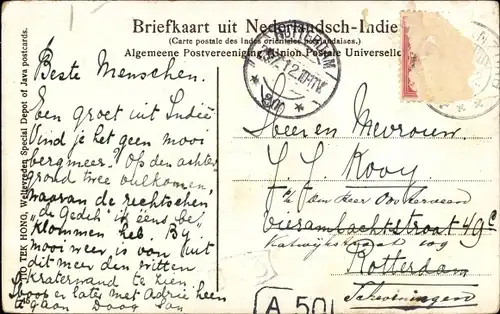 Briefkaart uit Nederlandsch-Indië
(Carte postale des Indes orientales néerlandaises.)
Algemeene Postvereeniging (Union Postale Universelle
TIO TEK HONG, Weltevreden Special Depot of Java postcards.
ROTTERDAM
Beste Menschen.
Een groet uit Indië
Vind je het geen mooi
bergmeer. Op den achter
grond twee vulkomen,
waaran de rechtschen
"de Gedeh" ik eens be-
klommen heb. By
mooi weer is van uit
dit meer den witten
kraterwand te zien.
Hoop er later met Adrie heen
te gaan Daag
Heer en Mevrouw.
Kooy
den Heer
Vierambachtstraat
Katwijkschestraat 109
Rotterdam
Scheveningen
A 50